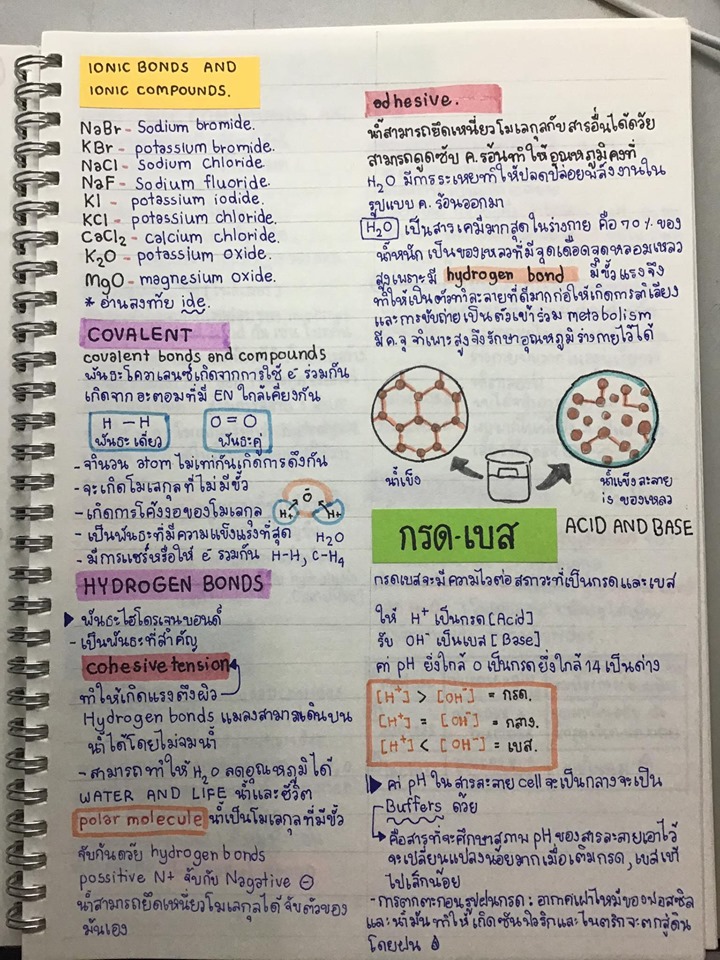 IONIC BONDS AND
IONIC COMPOUNDS.
NaBr - Sodium bromide.
KBr - potassium bromide.
NaCl - sodium chloride
NaF - Sodium fluoride.
KI - potassium iodide.
KCl - potassium chloride.
CaCl2 - calcium chloride.
K2O - potassium oxide.
MgO - magnesium oxide.
* อ่านลงท้าย ide.
COVALENT
covalent bonds and compounds
พันธะโควาเลนซ์เกิดจากการใช้ e⁻ ร่วมกัน
เกิดจากอะตอมที่มี EN ใกล้เคียงกัน
H – H
พันธะเดี่ยว
O = O
พันธะคู่
- จำนวน atom ไม่เท่ากันเกิดการดึงกัน
- จะเกิดโมเลกุลที่ไม่มีขั้ว
- เกิดการโค้งงอของโมเลกุล
- เป็นพันธะที่มีความแข็งแรงที่สุด H2O
- มีการแชร์หรือให้ e⁻ รวมกัน H-H, C-H4
O
H+ H+
HYDROGEN BONDS
พันธะไฮโดรเจนบอนด์
- เป็นพันธะที่สำคัญ
cohesive tension
ทำให้เกิดแรงตึงผิว
Hydrogen bonds แมลงสามารถเดินบน
น้ำได้โดยไม่จมน้ำ
- สามารถทำให้ H2O ลดอุณหภูมิได้
WATER AND LIFE น้ำและชีวิต
polar molecule น้ำเป็นโมเลกุลที่มีขั้ว
จับกันด้วย hydrogen bonds
possitive N+ จับกับ Nagative ⊖
น้ำสามารถยึดเหนี่ยวโมเลกุลได้ จับตัวของ
มันเอง
adhesive.
น้ำสามารถยึดเหนี่ยวโมเลกุลกับสารอื่นได้ด้วย
สามารถดูดซับ ค.ร้อนทำให้อุณหภูมิคงที่
H2O มีการระเหยทำให้ปลดปล่อยพลังงานใน
รูปแบบ ค. ร้อนออกมา
H2O เป็นสารเคมีมากสุดในร่างกาย คือ 70% ของ
น้ำหนัก เป็นของเหลวที่มีจุดเดือดจุดหลอมเหลว
สูงเพราะมี hydrogen bond มีขั้วแรงจึง
ทำให้เป็นตัวทำละลายที่ดีมากก่อให้เกิดการลำเลียง
และการขับถ่าย เป็นตัวเข้าร่วม metabolism
มี ค.จุ จำเพาะสูงจึงรักษาอุณหภูมิร่างกายไว้ได้
น้ำแข็ง
น้ำแข็งละลาย
is ของเหลว
กรด-เบส
ACID AND BASE
กรดเบสจะมีความไวต่อสภาวะที่เป็นกรดและเบส
ให้ H⁺ เป็นกรด [Acid]
รับ OH⁻ เป็นเบส [Base]
ค่า pH ยิ่งใกล้ 0 เป็นกรดยิ่งใกล้ 14 เป็นด่าง
[H⁺] > [OH⁻] = กรด.
[H⁺] = [OH⁻] = กลาง.
[H⁺] < [OH⁻] = เบส.
ค่า pH ในสารละลาย cell จะเป็นกลางจะเป็น
Buffers ด้วย
คือสารที่จะรักษาสภาพ pH ของสารละลายเอาไว้
จะเปลี่ยนแปลงน้อยมากเมื่อเติมกรด, เบสเท
ไปเล็กน้อย
- การตกตะกอนรูปฝนกรด : อากาศเผาไหม้ของฟอสซิล
และน้ำมันทำให้เกิดซัลฟิวริกและไนตริกจะตกสู่ดิน
โดยฝน